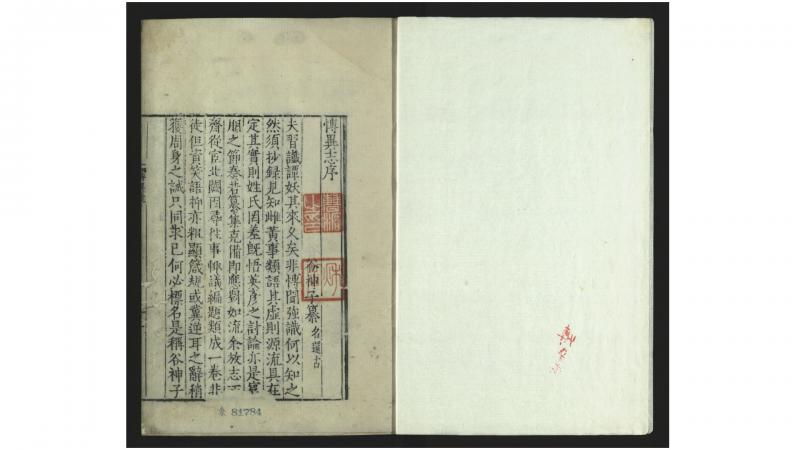 博異志序
谷神子纂 名還古
夫習讖譚妖其來久矣非博聞強識何以知之
然須抄録見知雌黄事類語其虛則源流具在
定其實則姓氏罔差旣悟英彦之討論亦是賓
朋之節奏若纂集克備即應對如流余放志西
齋從宦北闕因尋往事輒議編題類成一卷非
徒但資笑語抑亦粗顯箴規或冀逆耳之辭稍
獲周身之誡只同求已何必標名是稱谷神子
81784